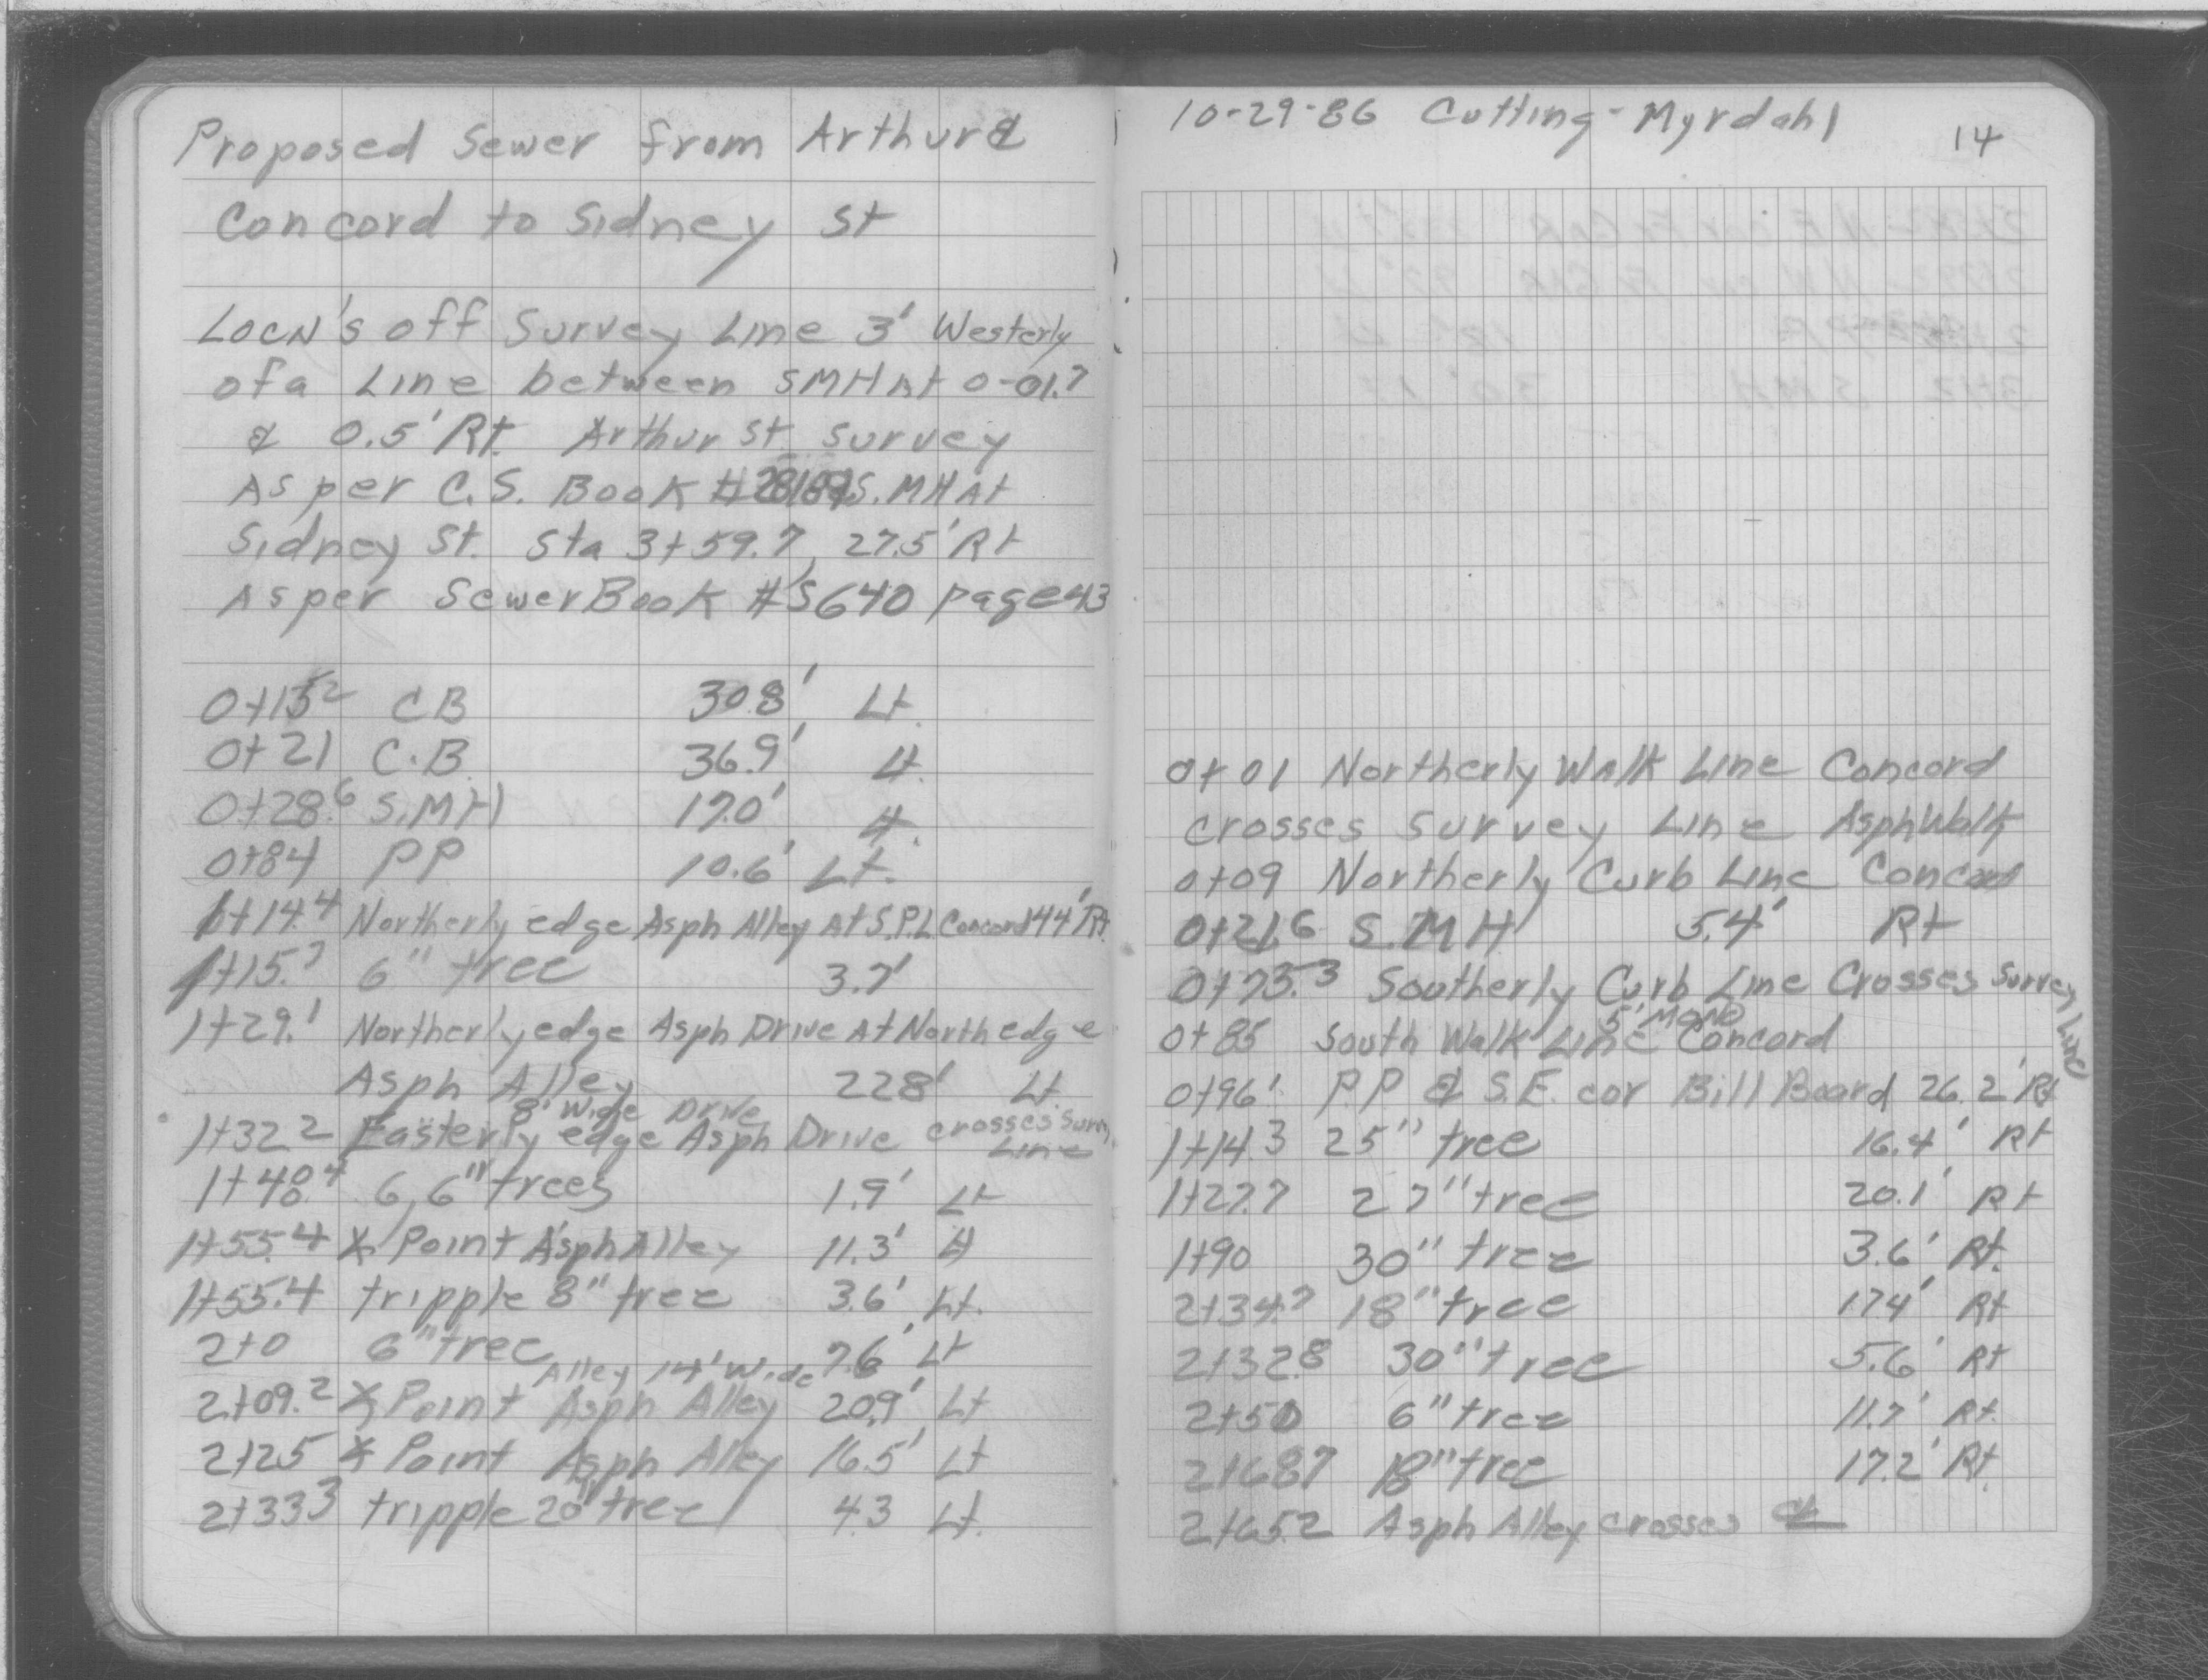 Proposed Sewer from Arthur &
Concord to Sidney St
Locn's off Survey Line 3' Westerly
of a Line between SMH At 0-01.7
& 0.5' Rt. Arthur St. Survey
As per C.S. Book # S.MH At
Sidney St. Sta 3+59.7, 27.5' Rt
As per Sewer Book #S640 page 43
0+15.2 CB 30.8' Lt.
0+21 C.B. 36.9' Lt.
0+28.6 S.MH 17.0' Lt.
0+84 PP 10.6' Lt.
1+14.4 Northerly edge Asph Alley At S.P.L. Concord 144' Rt.
1+15.7 6" tree 3.7'
1+29.1 Northerly edge Asph Drive At North edge
Asph Alley 228' Lt
8' Wide Drive
1+32 2 Easterly edge Asph Drive crosses Surv
Line
1+40.4 6, 6" trees 1.9' Lt
1+55.4 X Point Asph Alley 11.3' Lt
1+55.4 tripple 8" tree 3.6' Lt.
2+0 6" tree 7.6' Lt
Alley 14' Wide
2+09.2 X Point Asph Alley 20.9' Lt
2+25 X Point Asph Alley 16.5' Lt
2+333 tripple 20" tree 4.3 Lt.
10-29-86 Cutting - Myrdahl
14
0+01 Northerly Walk Line Concord
crosses Survey Line Asph Walk
0+09 Northerly Curb Line Concord
0+21.6 S.MH 5.4' Rt
0+73.3 Southerly Curb Line Crosses Survey Line
5' MONO
0+85 South Walk Line Concord
0+96' P.P & S.E. cor Bill Board 26.2' Rt
1+14.3 25" tree 16.4' Rt
1+27.7 27" tree 20.1' Rt
1+90 30" tree 3.6' Rt.
2+34.7 18" tree 174' Rt
2+32.8 30" tree 5.6' Rt
2+50 6" tree 11.7' Rt.
2+687 18" tree 17.2' Rt.
2+652 Asph Alley crosses